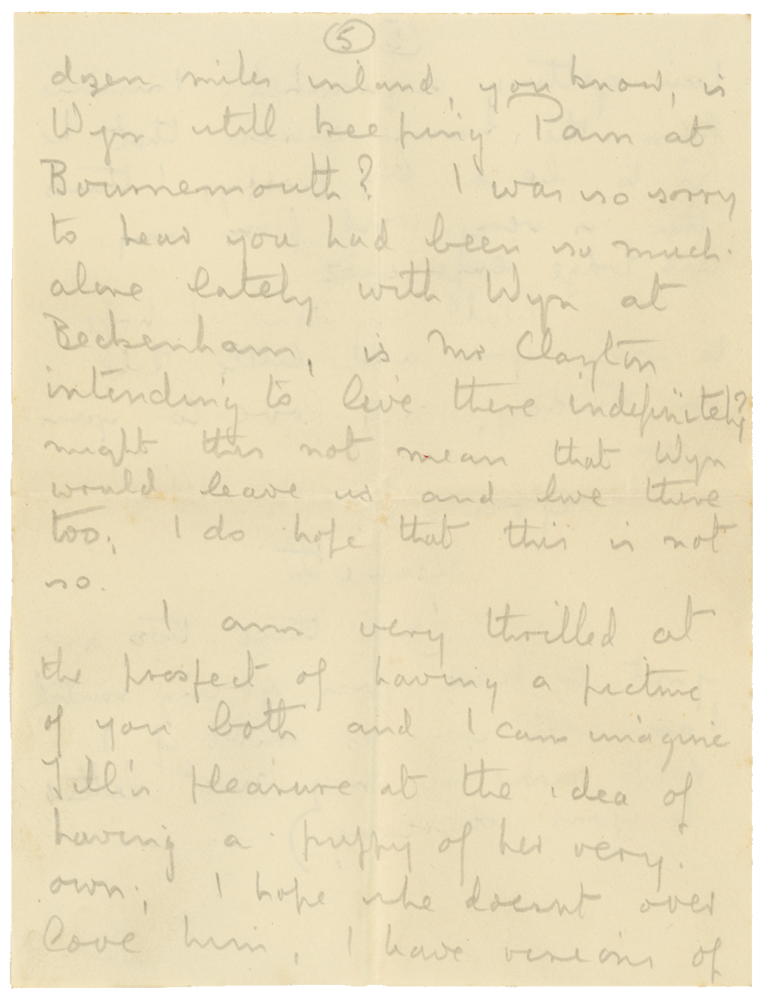 5
dozen miles inland, you know, is
Wyn still keeping Pam at
Bournemouth? I was so sorry
to hear you had been so much
alone lately with Wyn at
Beckenham, is Mr Clayton
intending to live there indefinitely?
might this not mean that Wyn
would leave us and live there
too, I do hope that this is not
so.
I am very thrilled at
the prospect of having a picture
of you both and I can imagine
Jill's pleasure at the idea of
having a puppy of her very
own, I hope she doesnt over
love him, I have visions of